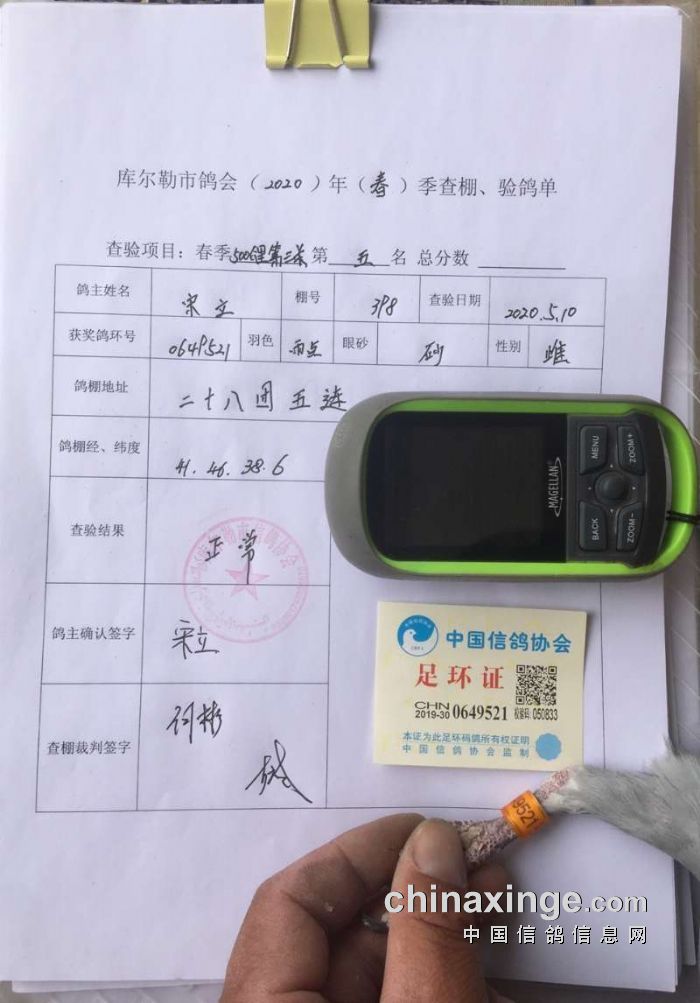 库尔勒市鸽会（2020）年（春）季查棚、验鸽单
查验项目：春季500公里第三关 第 五 名 总分数
鸽主姓名 宋立 棚号 398 查验日期 2020.5.10
获奖鸽环号 0649521 羽色 雨点 眼砂 砂 性别 雌
鸽棚地址 二十八团五连
鸽棚经、纬度 41.46.38.6
查验结果 正常
鸽主确认签字 宋立
查棚裁判签字
MAGELLAN
MENU
ZOOM+
BACK
ZOOM-
中国信鸽协会
足环证
CHN
2019-30 0649521 校验码: 050833
本证为此足环码鸽所有权证明
中国信鸽协会监制
9521
chinaxinge.com
中国信鸽信息网